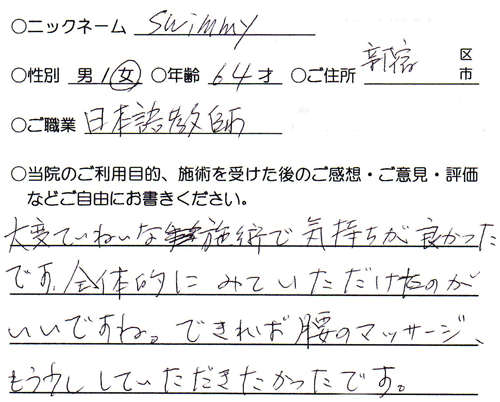 ○ニックネーム swimmy
○性別 男・女 ○年齢 64才 ○ご住所 新宿 区市
○ご職業 日本語教師
○当院のご利用目的、施術を受けた後のご感想・ご意見・評価
などご自由にお書きください。
大変ていねいな施術で気持ちが良かった
です。全体的にみていただけたのが
いいですね。できれば腰のマッサージ、
もう少ししていただきたかったです。